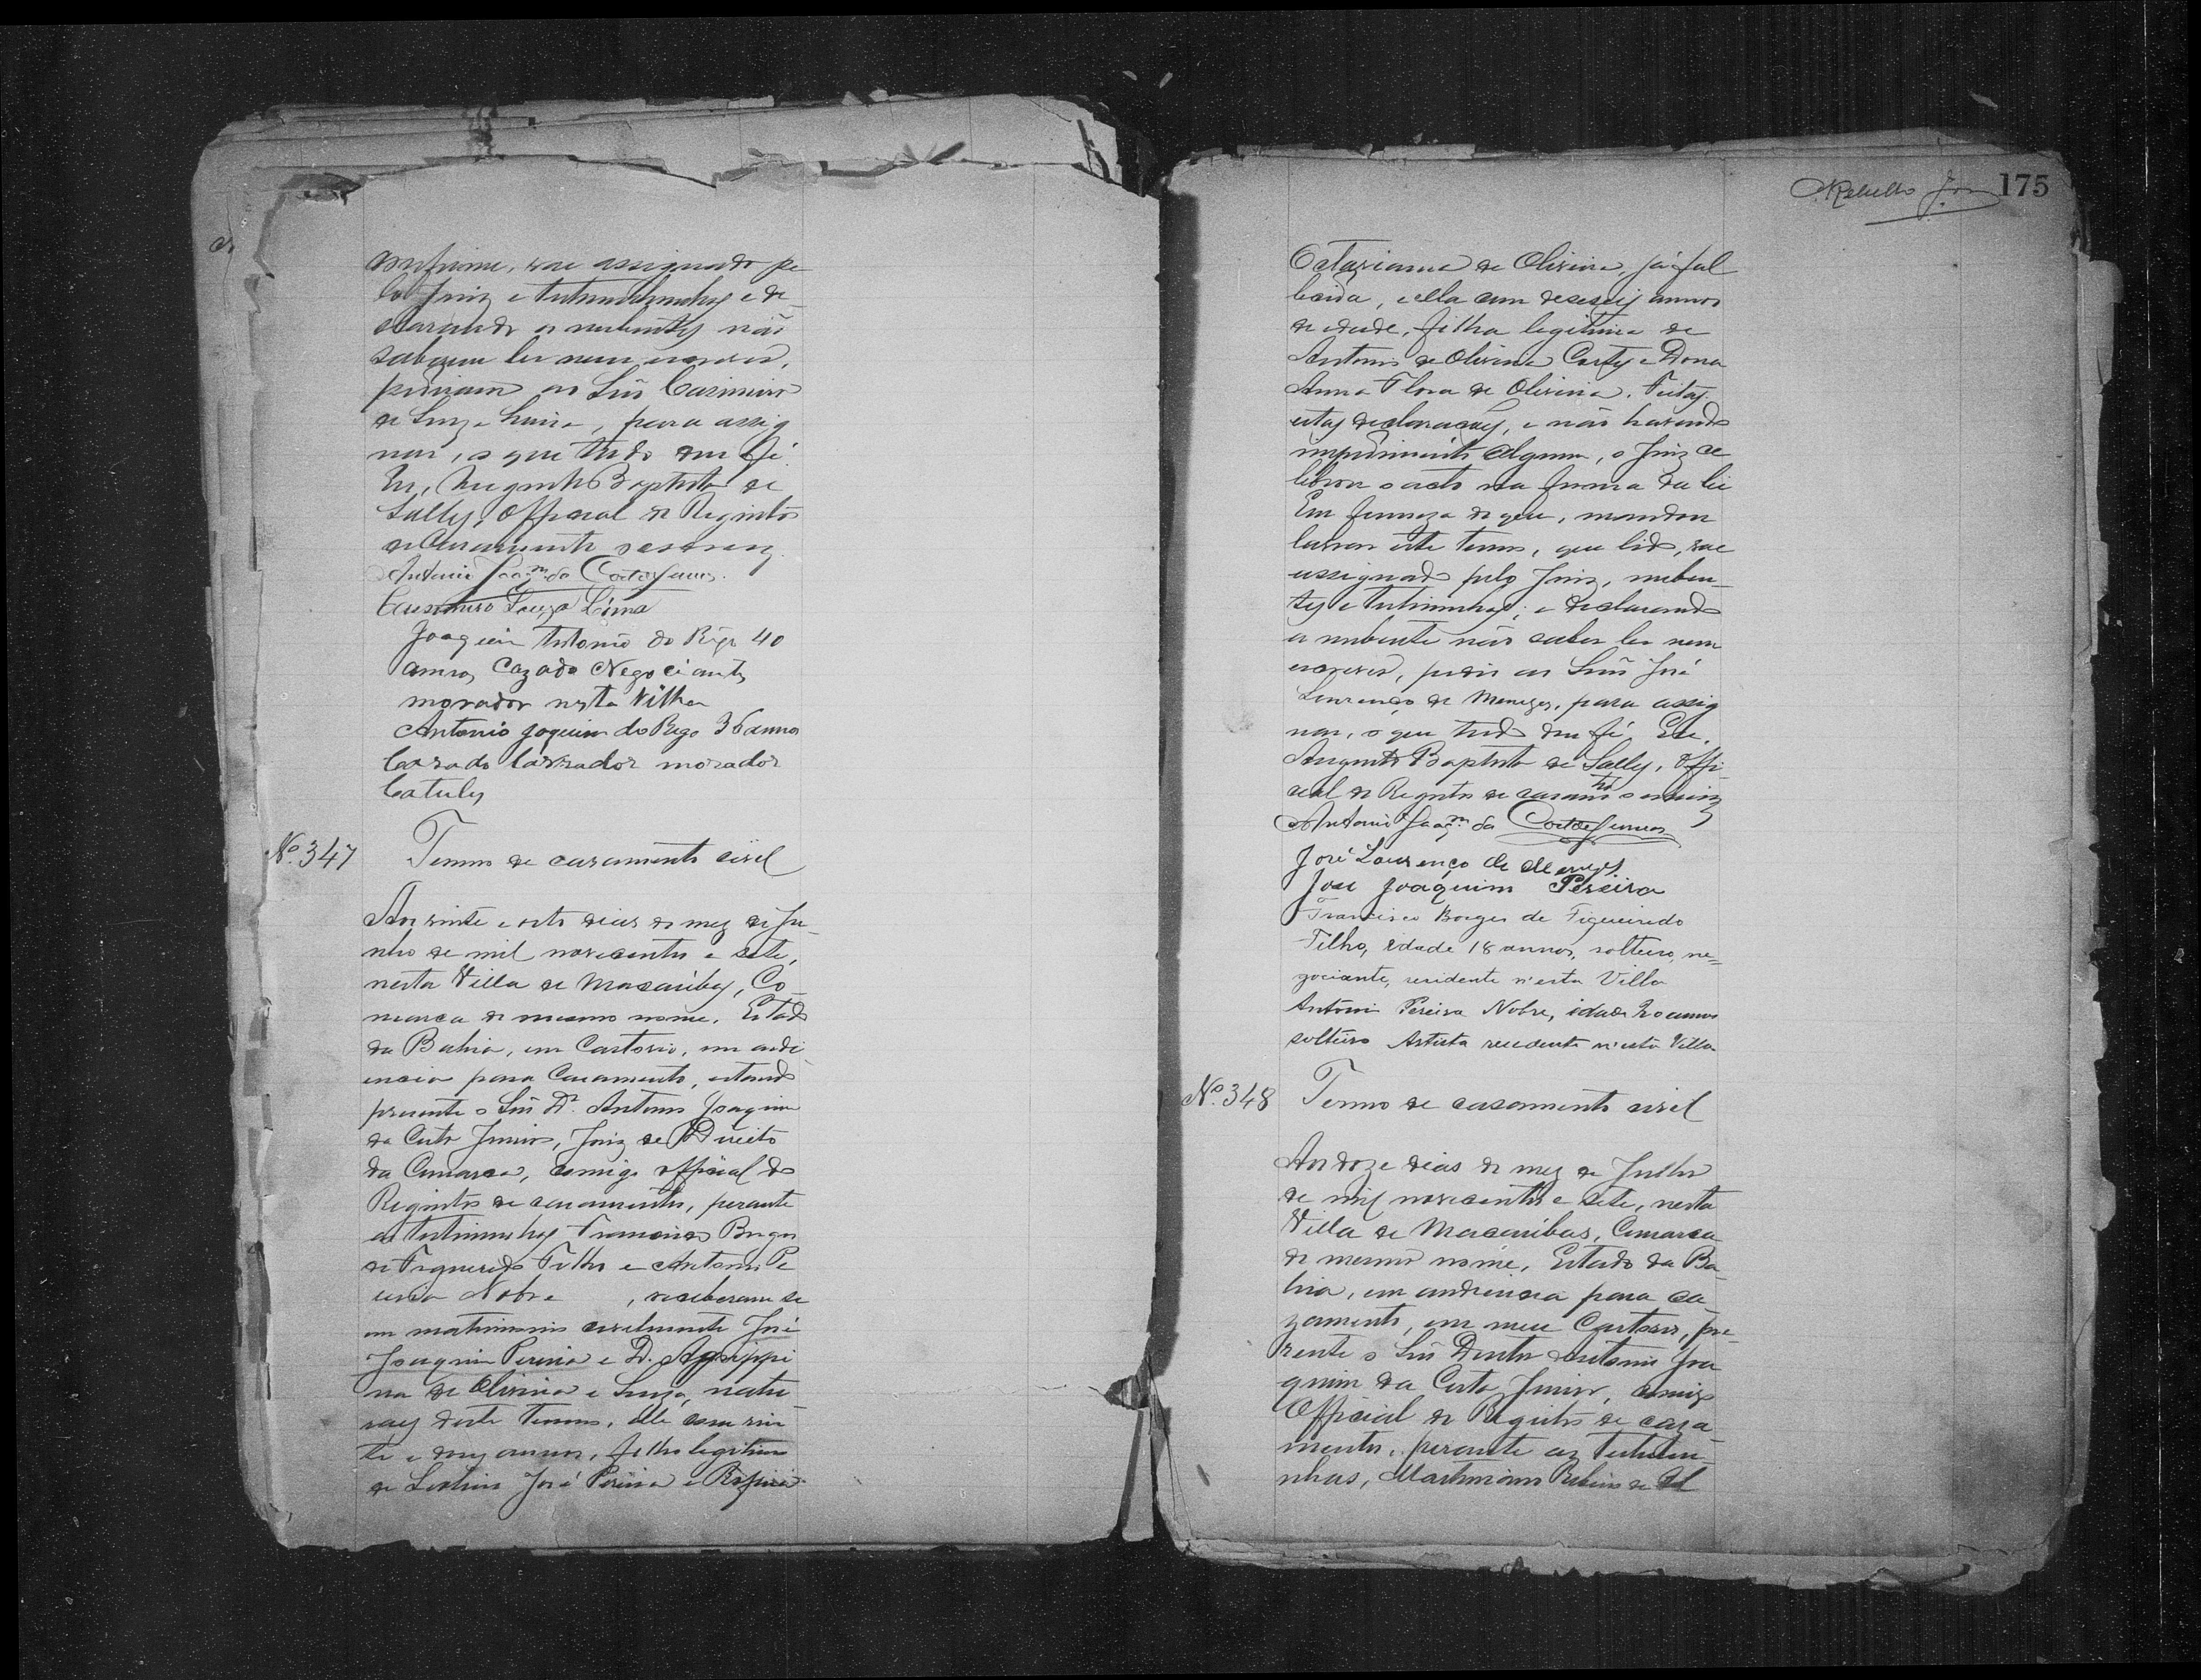 conforme, vae assignado pe
lo Juiz e testemunhas e de
clarando os nubentes não
saberem ler nem escrever,
pediram ao Snr̃ Casimiro
de Souza Lima, para assig
nar, o que tudo dou fé.
Eu, Augusto Baptista de
Salles, Official do Registro
de Casamento o escrevy.
Antonio Joaqm da Costa Junior.
Casimiro Souza Lima
Joaquim Antonio do Rego 40
annos Cazado Negociante
morador nesta Villa
Antonio Joquim do Rego 36 annos
Casado lavrador morador
Catules
No. 347 Termo de casamento civil
Aos vinte e oito dias do mez de Ju-
nho de mil novecentos e sete,
nesta Villa de Macaúbas, Co-
marca do mesmo nome, Estado
da Bahia, em Cartorio, em audi
encia para Casamento, estando
presente o Snr̃ Dr. Antonio Joaquim
da Costa Junior, Juiz de Direito
da Comarca, comigo official do
Registro de casamentos, perante
as testimunhas Francisco Borges
de Figueredo Filho e Antonio Pe
reira Nobre , receberam se
em matrimonio civilmente José
Joaquim Pereira e D. Agrippi
na de Oliveira e Souza, natu-
raes deste Termo, elle com vin
te e dois annos, filho legitimo
de José Pereira e
175
Octaviana de Oliveira, já fal
lecida, e ella com deseseis annos
de edade, filha legitima de
Antonio de Oliveira Costa e Dona
Anna Flora de Oliveira. Feitas
estas declarações, e não havendo
impedimento algum, o Juiz ce
lebrou o acto na forma da lei
Em firmeza do que, mandou
lavrar este termo, que lido, vae
assignado pelo Juiz, nuben-
tes e testimunhas; e declarando
a nubente não saber ler nem
escrever, pediu ao Snr̃ José
Lourenço de Menezes, para assig
nar, o que tudo dou fé. Eu,
Augusto Baptista de Salles, Offi-
cial do Registro de casamto o escrevy
Antonio Joaqm da Costa Junior
José Lourenço de Menezes
José Joaquim Pereira
Francisco Borges de Figueiredo
Filho, idade 18 annos, solteiro, ne=
gociante, residente n'esta Villa
Antonio Pereira Nobre, idade 20 annos
solteiro Artista residente n'esta Villa
No. 348 Termo de casamento civil
Aos doze dias do mez de Julho
de mil novecentos e sete, nesta
Villa de Macaúbas, Comarca
do mesmo nome, Estado da Ba-
hia, em audiencia para ca
zamento, em meu Cartorio, pre-
zente o Snr̃ Doutor Antonio Joa
quim da Costa Junior, comigo
Official do Registro de caza
mento, perante as testemu-
nhas, Ribeiro de